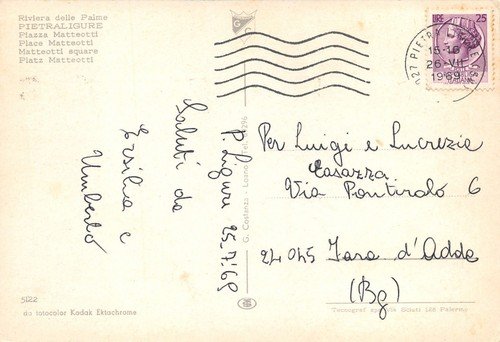 Riviera delle Palme
PIETRALIGURE
Piazza Matteotti
Place Matteotti
Matteotti square
Platz Matteotti
LIRE 25
15-18
26-VII
1969
P. Ligure 25.7.69
Saluti da
Ersilia e
Umberto
Per Luigi e Lucrezia
Casazza
Via Pontirolo 6
24045 Fara d'Adda
(Bg)
G. Costanza - Loano - Tel.
5122
da fotocolor Kodak Ektachrome
Tecnograf